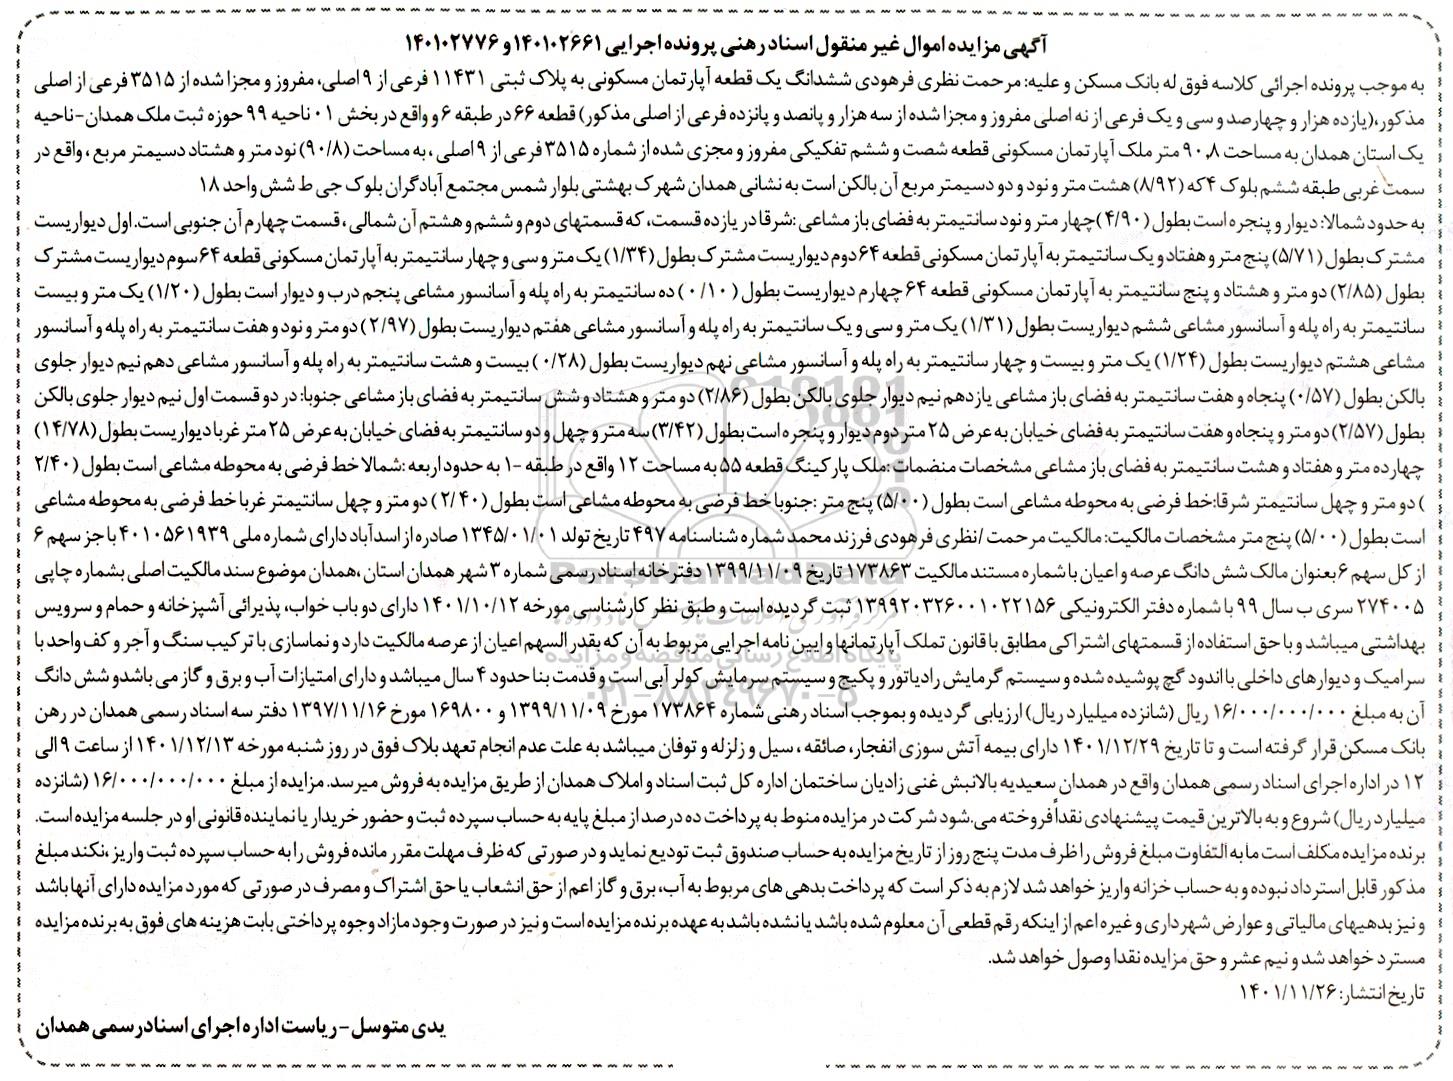 آگهی مزایده اموال غیر منقول اسناد رهنی پرونده اجرایی ۱۴۰۱۰۲۶۶۱ و ۱۴۰۱۰۲۷۷۶
به موجب پرونده اجرائی کلاسه فوق له بانک مسکن و علیه: مرحمت نظری فرهودی ششدانگ یک قطعه آپارتمان مسکونی به پلاک ثبتی ۱۱۴۳۱ فرعی از ۹ اصلی، مفروز و مجزا شده از ۳۵۱۵ فرعی از اصلی
مذکور،(یازده هزار و چهارصد و سی و یک فرعی از نه اصلی مفروز و مجزا شده از سه هزار و پانصد و پانزده فرعی از اصلی مذکور) قطعه ۶۶ در طبقه ۶ و واقع در بخش ۰۱ ناحیه ۹۹ حوزه ثبت ملک همدان-ناحیه
یک استان همدان به مساحت ۹۰.۸ متر ملک آپارتمان مسکونی قطعه شصت و ششم تفکیکی مفروز و مجزی شده از شماره ۳۵۱۵ فرعی از ۹ اصلی ، به مساحت (۹۰/۸) نود متر و هشتاد دسیمتر مربع ، واقع در
سمت غربی طبقه ششم بلوک ۴ که (۸/۹۲) هشت متر و نود و دو دسیمتر مربع آن بالکن است به نشانی همدان شهرک بهشتی بلوار شمس مجتمع آبادگران بلوک جی ط شش واحد ۱۸
به حدود شمالا: دیوار و پنجره است بطول (۴/۹۰) چهار متر و نود سانتیمتر به فضای باز مشاعی :شرقا در یازده قسمت، که قسمتهای دوم و ششم و هشتم آن شمالی ، قسمت چهارم آن جنوبی است. اول دیواریست
مشترک بطول (۵/۷۱) پنج متر و هفتاد و یک سانتیمتر به آپارتمان مسکونی قطعه ۶۴ دوم دیواریست مشترک بطول (۱/۳۴) یک متر و سی و چهار سانتیمتر به آپارتمان مسکونی قطعه ۶۴ سوم دیواریست مشترک
بطول (۲/۸۵) دو متر و هشتاد و پنج سانتیمتر به آپارتمان مسکونی قطعه ۶۴ چهارم دیواریست بطول (۰/۱۰) ده سانتیمتر به راه پله و آسانسور مشاعی پنجم درب و دیوار است بطول (۱/۲۰) یک متر و بیست
سانتیمتر به راه پله و آسانسور مشاعی ششم دیواریست بطول (۱/۳۱) یک متر و سی و یک سانتیمتر به راه پله و آسانسور مشاعی هفتم دیواریست بطول (۲/۹۷) دو متر و نود و هفت سانتیمتر به راه پله و آسانسور
مشاعی هشتم دیواریست بطول (۱/۲۴) یک متر و بیست و چهار سانتیمتر به راه پله و آسانسور مشاعی نهم دیواریست بطول (۰/۲۸) بیست و هشت سانتیمتر به راه پله و آسانسور مشاعی دهم نیم دیوار جلوی
بالکن بطول (۰/۵۷) پنجاه و هفت سانتیمتر به فضای باز مشاعی یازدهم نیم دیوار جلوی بالکن بطول (۲/۸۶) دو متر و هشتاد و شش سانتیمتر به فضای باز مشاعی جنوبا: در دو قسمت اول نیم دیوار جلوی بالکن
بطول (۲/۵۷) دو متر و پنجاه و هفت سانتیمتر به فضای خیابان به عرض ۲۵ متر دوم دیوار و پنجره است بطول (۳/۴۲) سه متر و چهل و دو سانتیمتر به فضای خیابان به عرض ۲۵ متر غربا دیواریست بطول (۱۴/۷۸)
چهارده متر و هفتاد و هشت سانتیمتر به فضای باز مشاعی مشخصات منضمات :ملک پارکینگ قطعه ۵۵ به مساحت ۱۲ واقع در طبقه ۱- به حدود اربعه :شمالا خط فرضی به محوطه مشاعی است بطول (۲/۴۰
) دو متر و چهل سانتیمتر شرقا:خط فرضی به محوطه مشاعی است بطول (۵/۰۰) پنج متر :جنوبا خط فرضی به محوطه مشاعی است بطول (۲/۴۰) دو متر و چهل سانتیمتر غربا خط فرضی به محوطه مشاعی
است بطول (۵/۰۰) پنج متر مشخصات مالکیت: مالکیت مرحمت /نظری فرهودی فرزند محمد شماره شناسنامه ۴۹۷ تاریخ تولد ۱۳۴۵/۰۱/۰۱ صادره از اسدآباد دارای شماره ملی ۴۰۱۰۵۶۱۹۳۹ با جز سهم ۶
از کل سهم ۶ بعنوان مالک شش دانگ عرصه و اعیان با شماره مستند مالکیت ۱۷۳۸۶۳ تاریخ ۱۳۹۹/۱۱/۰۹ دفترخانه اسناد رسمی شماره ۳ شهر همدان استان ،همدان موضوع سند مالکیت اصلی بشماره چاپی
۲۷۴۰۰۵ سری ب سال ۹۹ با شماره دفتر الکترونیکی ۱۳۹۹۲۰۳۲۶۰۰۱۰۲۲۱۵۶ ثبت گردیده است و طبق نظر کارشناسی مورخه ۱۴۰۱/۱۰/۱۲ دارای دو باب خواب، پذیرائی آشپزخانه و حمام و سرویس
بهداشتی میباشد و با حق استفاده از قسمتهای اشتراکی مطابق با قانون تملک آپارتمانها و ایین نامه اجرایی مربوط به آن که بقدر السهم اعیان از عرصه مالکیت دارد و نماسازی با ترکیب سنگ و آجر و کف واحد با
سرامیک و دیوارهای داخلی با اندود گچ پوشیده شده و سیستم گرمایش رادیاتور و پکیج و سیستم سرمایش کولر آبی است و قدمت بنا حدود ۴ سال میباشد و دارای امتیازات آب و برق و گاز می باشدو شش دانگ
آن به مبلغ ۱۶/۰۰۰/۰۰۰/۰۰۰ ریال (شانزده میلیارد ریال) ارزیابی گردیده و بموجب اسناد رهنی شماره ۱۷۳۸۶۴ مورخ ۱۳۹۹/۱۱/۰۹ و ۱۶۹۸۰۰ مورخ ۱۳۹۷/۱۱/۱۶ دفتر سه اسناد رسمی همدان در رهن
بانک مسکن قرار گرفته است و تا تاریخ ۱۴۰۱/۱۲/۲۹ دارای بیمه آتش سوزی انفجار، صائقه ، سیل و زلزله و توفان میباشد به علت عدم انجام تعهد بلاک فوق در روز شنبه مورخه ۱۴۰۱/۱۲/۱۳ از ساعت ۹ الی
۱۲ در اداره اجرای اسناد رسمی همدان واقع در همدان سعیدیه بالا نبش غنی زادیان ساختمان اداره کل ثبت اسناد و املاک همدان از طریق مزایده به فروش میرسد. مزایده از مبلغ ۱۶/۰۰۰/۰۰۰/۰۰۰ (شانزده
میلیارد ریال) شروع و به بالاترین قیمت پیشنهادی نقداً فروخته می.شود شرکت در مزایده منوط به پرداخت ده درصد از مبلغ پایه به حساب سپرده ثبت و حضور خریدار یا نماینده قانونی او در جلسه مزایده است.
برنده مزایده مکلف است مابه التفاوت مبلغ فروش را ظرف مدت پنج روز از تاریخ مزایده به حساب صندوق ثبت تودیع نماید و در صورتی که ظرف مهلت مقرر مانده فروش را به حساب سپرده ثبت واریز ،نکند مبلغ
مذکور قابل استرداد نبوده و به حساب خزانه واریز خواهد شد لازم به ذکر است که پرداخت بدهی های مربوط به آب، برق و گاز اعم از حق انشعاب یا حق اشتراک و مصرف در صورتی که مورد مزایده دارای آنها باشد
و نیز بدهیهای مالیاتی و عوارض شهرداری و غیره اعم از اینکه رقم قطعی آن معلوم شده باشد یا نشده باشد به عهده برنده مزایده است و نیز در صورت وجود مازاد وجوه پرداختی بابت هزینه های فوق به برنده مزایده
مسترد خواهد شد و نیم عشر و حق مزایده نقدا وصول خواهد شد.
تاریخ انتشار: ۱۴۰۱/۱۱/۲۶
یدی متوسل - ریاست اداره اجرای اسناد رسمی همدان
ParsNamadData
پایگاه اطلاع رسانی مناقصه و مزایده
۰۲۱-۸۸۳۴۹۶۷۰-۵